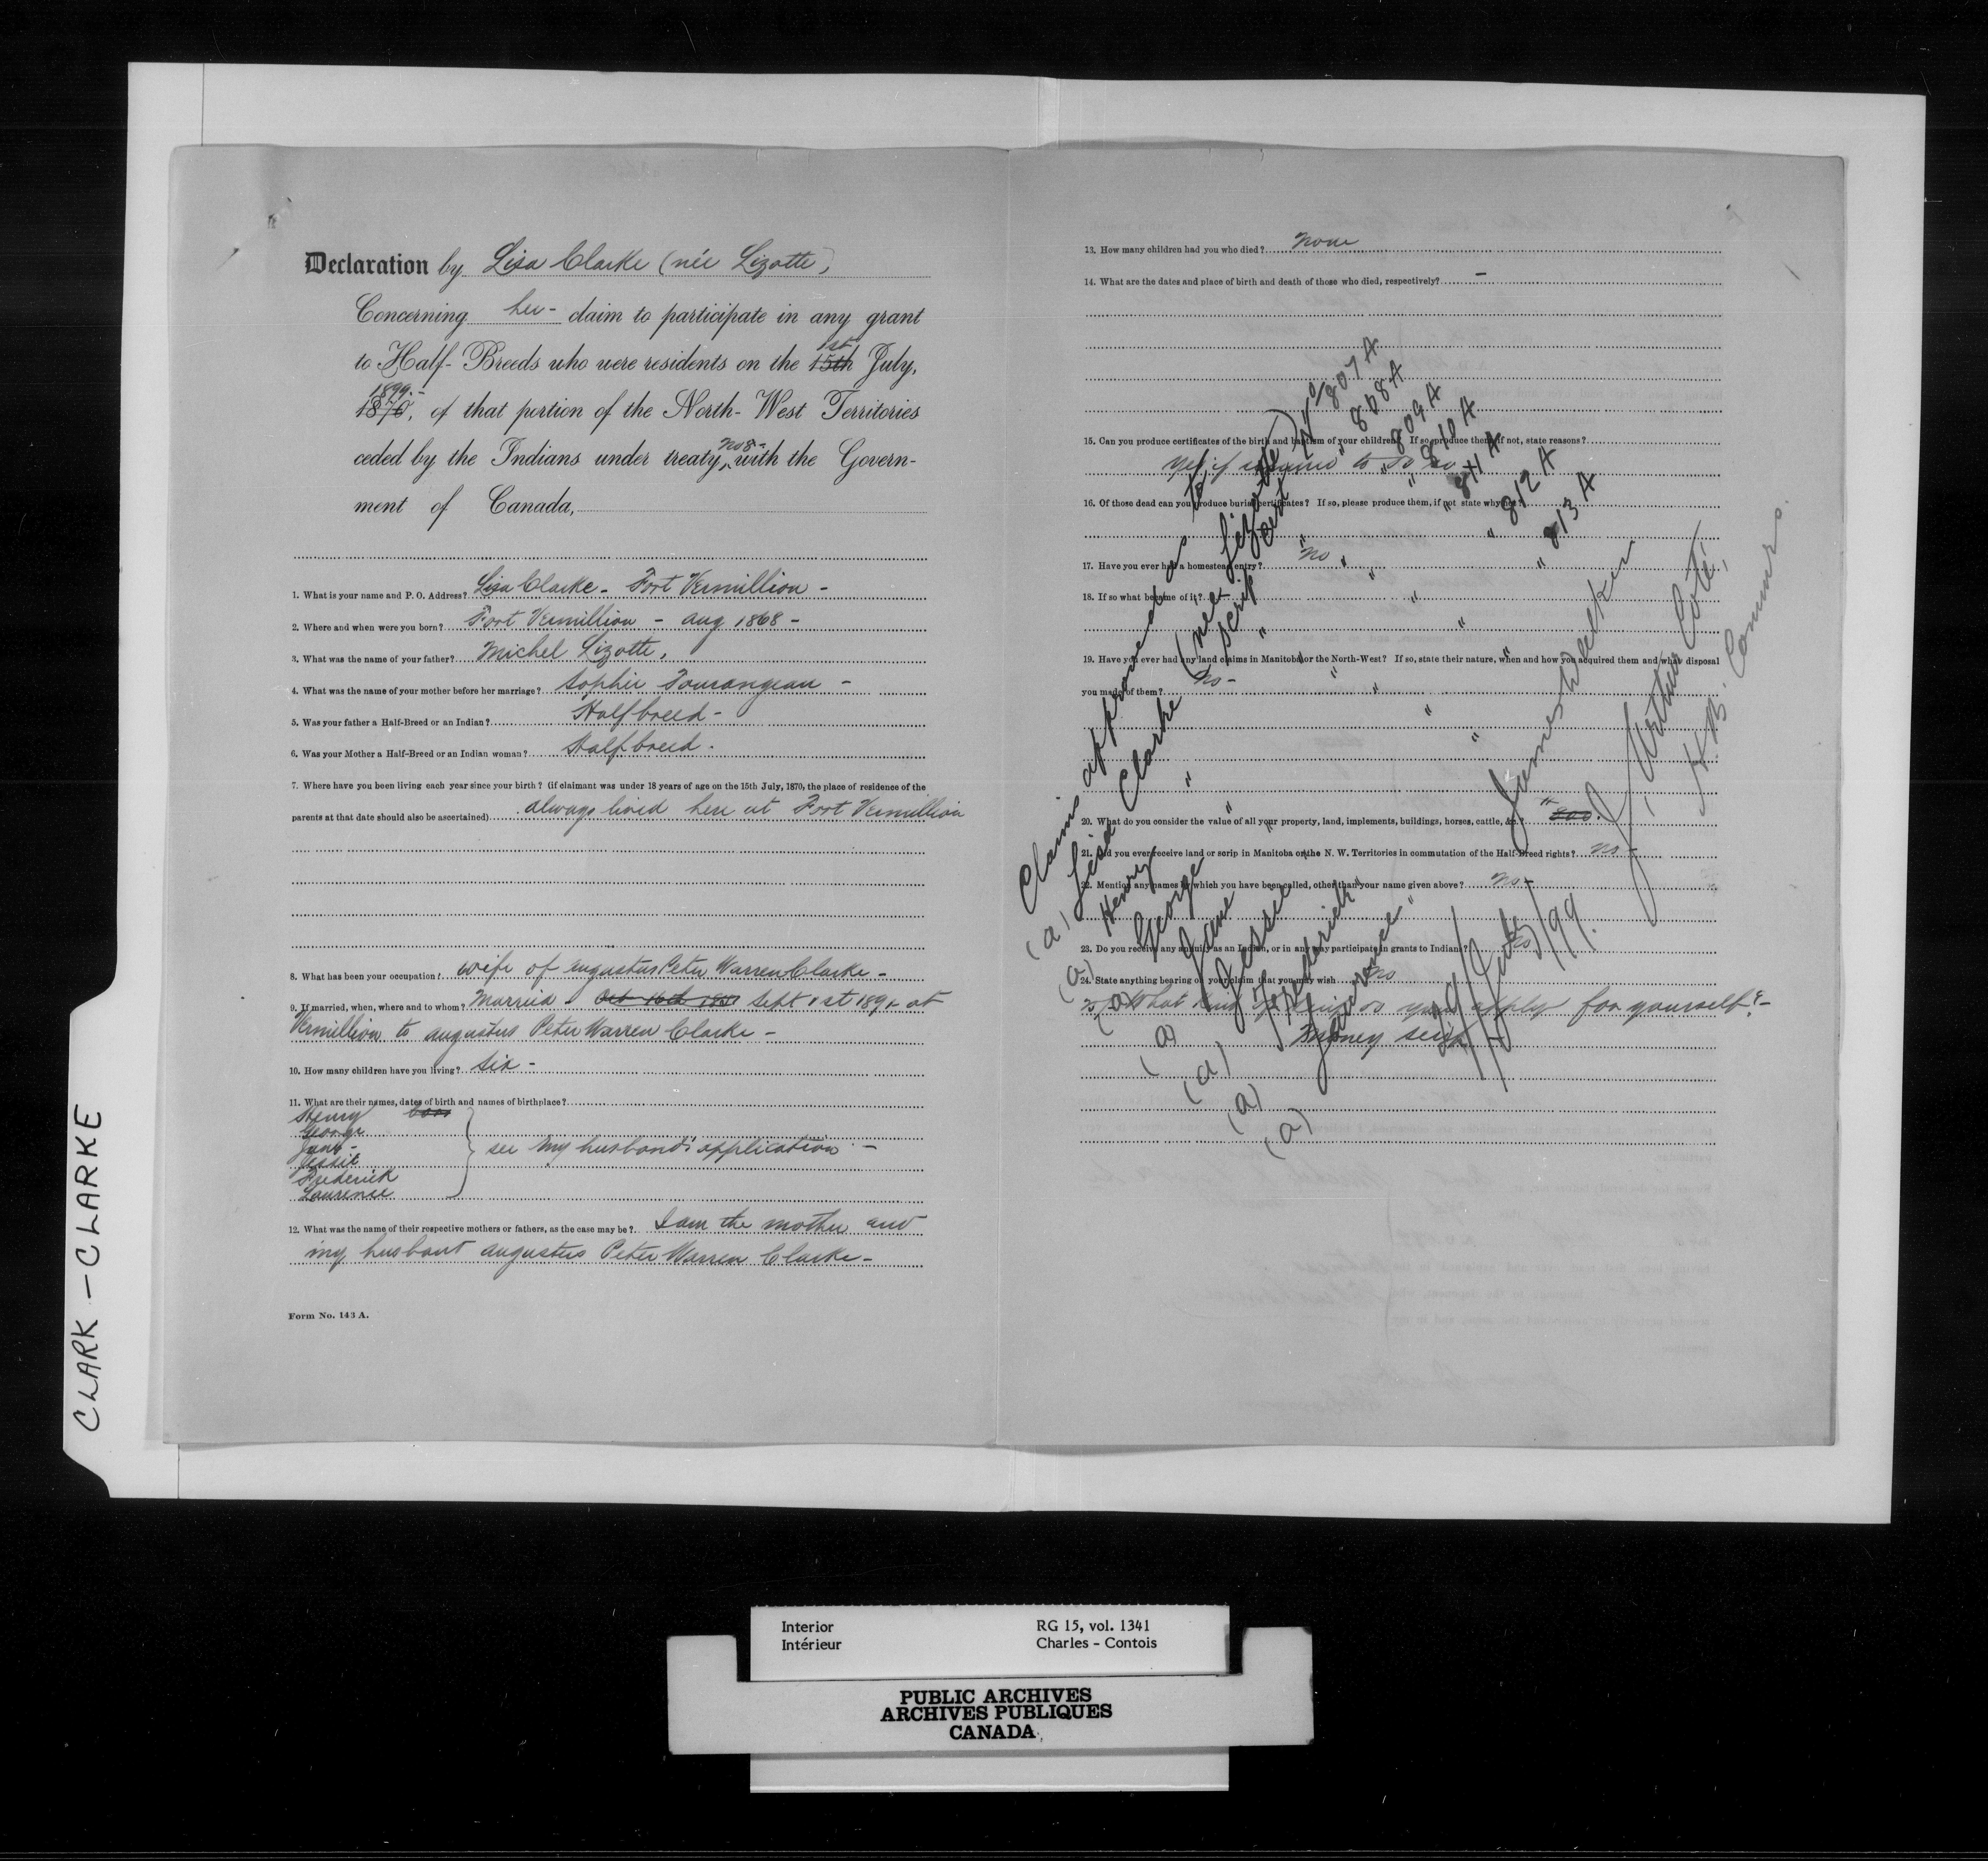 CLARK - CLARKE
Declaration by Lisa Clarke (née Lizotte)
Concerning her - claim to participate in any grant
to Half-Breeds who were residents on the 15th 1st July,
1870, 1899.- of that portion of the North-West Territories
ceded by the Indians under treaty No 8- with the Govern-
ment of Canada,
1. What is your name and P. O. Address? Lisa Clarke - Fort Vermillion -
2. Where and when were you born? Fort Vermillion - Aug 1868 -
3. What was the name of your father? Michel Lizotte,
4. What was the name of your mother before her marriage? Sophie Tourangeau -
5. Was your father a Half-Breed or an Indian? Halfbreed -
6. Was your Mother a Half-Breed or an Indian woman? Halfbreed .
7. Where have you been living each year since your birth? (if claimant was under 18 years of age on the 15th July, 1870, the place of residence of the
parents at that date should also be ascertained) always lived here at Fort Vermillion
8. What has been your occupation? wife of Augustus Peter Warren Clarke -
9. If married, when, where and to whom? Married - Sept 1st at
Vermillion to Augustus Peter Warren Clarke -
10. How many children have you living? Six -
11. What are their names, dates of birth and names of birthplace?
Henry born
George
Jane -
Jessie
Frederick
Laurence
see my husband's application -
12. What was the name of their respective mothers or fathers, as the case may be? I am the mother and
my husbant Augustus Peter Warren Clarke -
Form No. 143 A.
13. How many children had you who died? None
14. What are the dates and place of birth and death of those who died, respectively? -
15. Can you produce certificates of the birth and baptism of your children? If so, produce them, if not, state reasons?
Yes if to do so
16. Of those dead can you produce burial certificates? If so, please produce them, if not state why not?
17. Have you ever had a homestead entry? No
18. If so what became of it?
19. Have you ever had any land claims in Manitoba or the North-West? If so, state their nature, when and how you acquired them and what disposal
you made of them? No -
20. What do you consider the value of all your property, land, implements, buildings, horses, cattle, &c.?
21. Did you ever receive land or scrip in Manitoba or the N. W. Territories in commutation of the Half-Breed rights? No -
22. Mention any names by which you have been called, other than your name given above? No -
23. Do you receive any annuity as an Indian, or in any way participate in grants to Indians? No
24. State anything bearing on your claim that you may wish No
What kind of scrip do you apply for yourself? -
Money scrip -
Claims approved as to
(a) Lisa Clarke (née Lizotte) Scrip Cert No 807 A
(a) Henry " " " " 808 A
(a) George " " " " 809 A
(a) Jane " " " " 810 A
(a) Jessie " " " " 811 A
(a) Frederick " " " " 812 A
(a) Laurence " " " " 813 A
James Walker
J. Arthur Coté,
H.B. Commrs.
July/99.
Interior
Intérieur
RG 15, vol. 1341
Charles - Contois
PUBLIC ARCHIVES
ARCHIVES PUBLIQUES
CANADA